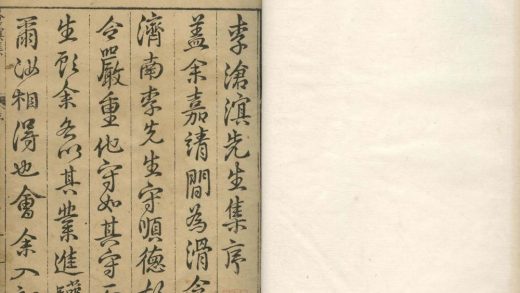 李滄溟先生集序
蓋余嘉靖間為滑令
濟南李先生守順德
令品嚴重他守如其守
生所余各以其業進
爾汝相得也會余入